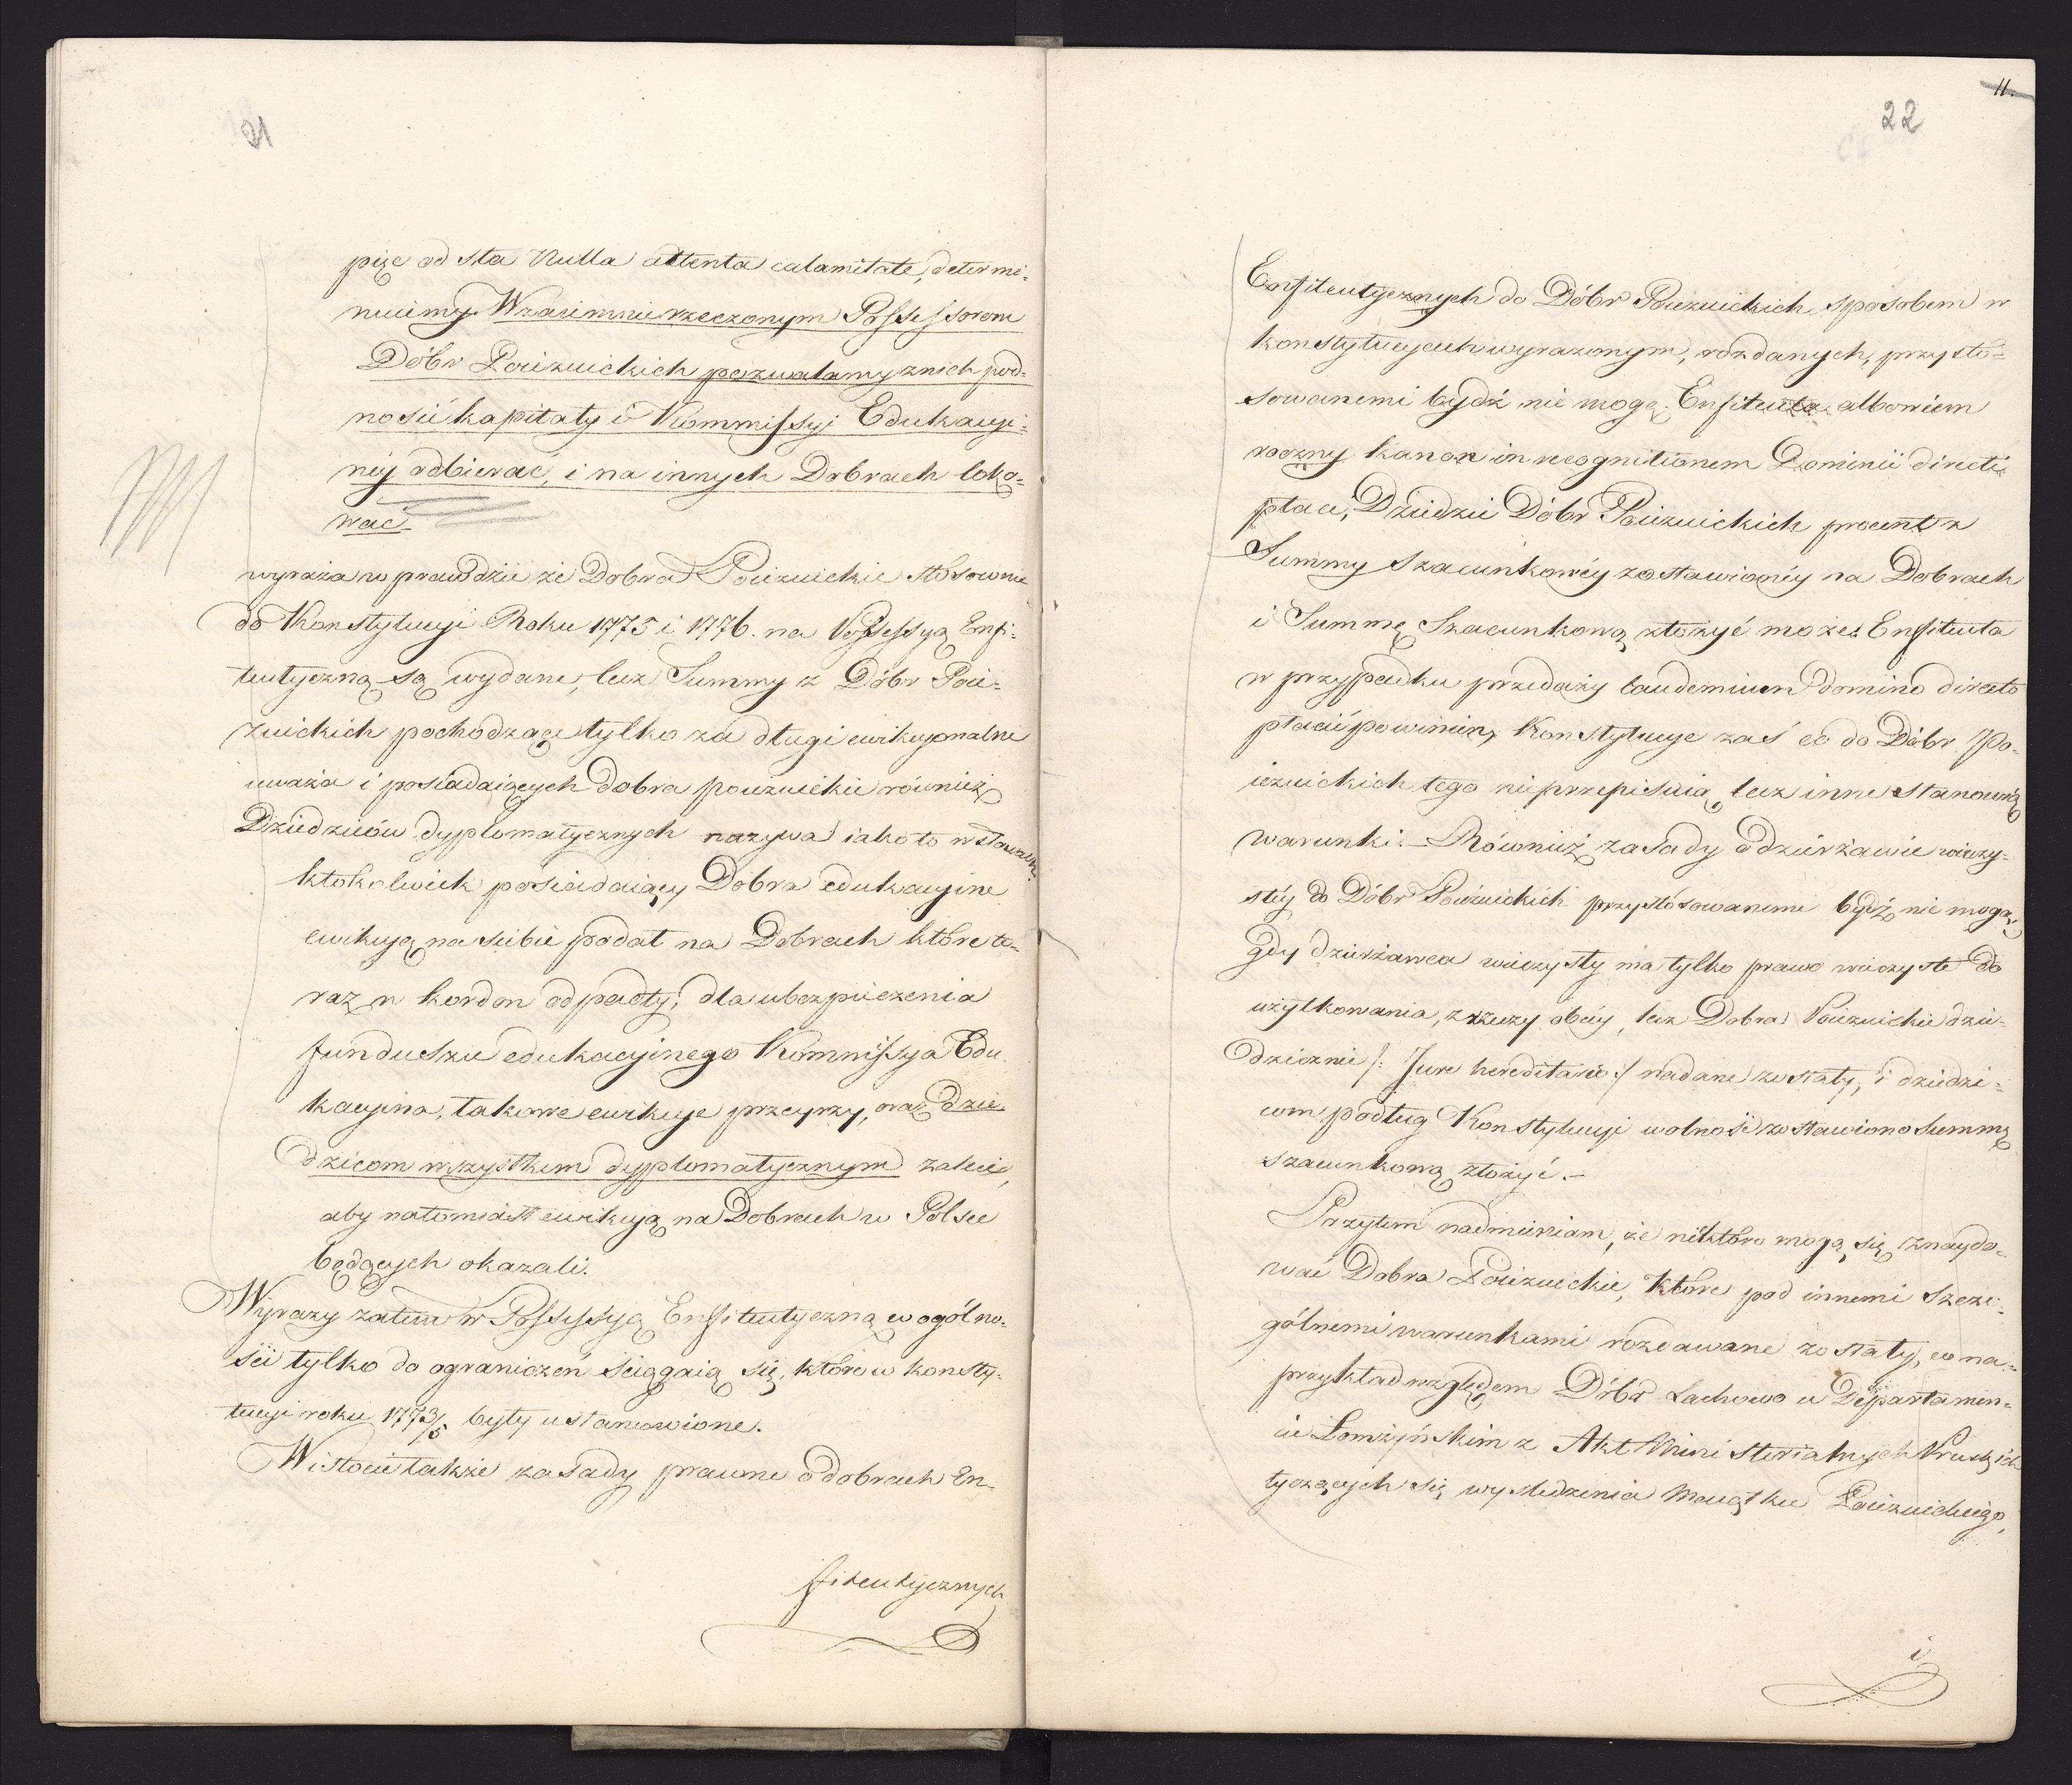 21
pięć od sta Nulla attenta calamitate, determi=
nuiemy. Wzaiemnie rzeczonym Possessorom
Dóbr Poiezuickich pozwalamy z nich pod=
nosić kapitały i Kommissyi Edukacyi=
néy odbierać, i na innych Dobrach loko=
wać.
wyraża w prawdzie że Dobra Poiezuickie stosownie
do Konstytucyi Roku 1775 i 1776. na Possessyą Enfi=
teutyczną są wydane, lecz Summy z Dóbr Poie=
zuickich pochodzące tylko za długi ewikcyonalne
uważa i posiadaiących Dobra pouezuickie również
Dziedziców dyplomatycznych nazywa iako to w słowach:
ktokolwiek posiadaiący Dobra edukacyine
ewikcyą na siebie podał na Dobrach które te=
raz w kordon odpadły, dla ubezpieczenia
funduszu edukacyinego Kommissya Edu=
kacyina, takowe ewikcye przeyrzy, oraz dzie=
dzicom wszystkim dyplomatycznym zaleci,
aby natomiast ewikcyą na Dobrach w Polsce
będących okazali.
Wyrazy zatem w Possessyą Enfiteutyczną w ogólno=
ści tylko do ograniczeń ściągaią się, które w konsty=
tucyi roku 1773/5 były ustanowione.
W istocie także zasady prawne o dobrach En=
fiteutycznych
11.
22
Enfiteutycznych do Dóbr Poiezuickich sposobem w
konstytucyach wyrażonym, rozdanych, przysto=
sowanemi bydź nie mogą. Enfiteuta albowiem
roczny kanon in recognitionem Dominii directi
płaci, Dziedzic Dóbr Poiezuickich procent z
Summy Szacunkowéy zostawionéy na Dobrach
i Summę Szacunkową złożyć może. Enfiteuta
w przypadku przedaży laudemium domino directo
płacić powinien, Konstytucye zaś co do Dóbr Po=
iezuickich tego nie przepisuią, lecz inne stanowią
warunki. Również zasady o dzierżawie wieczy=
stéy do Dóbr Poiezuickich przystósowanemi bydź nie mogą,
gdy dzierżawca wieczysty ma tylko prawo wieczyste do
użytkowania, z rzeczy obcéy, lecz Dobra Poiezuickie dzie=
dzicznie /: Jure hereditario :/ nadane zostały, i dziedzi=
com podług Konstytucyi wolność zostawiono summę
szacunkową złożyć. –
Przytem nadmieniam, że niektóre mogą się znaydo=
wać Dobra Poiezuickie, które pod innemi szcze=
gólnemi warunkami rozdawane zostały, co na=
przykład względem Dóbr Lachowo w Departamen=
cie Łomżyńskim z Akt Ministerialnych Pruskich
tyczących się wyśledzenia Maiątku Poiezuickiego,
i